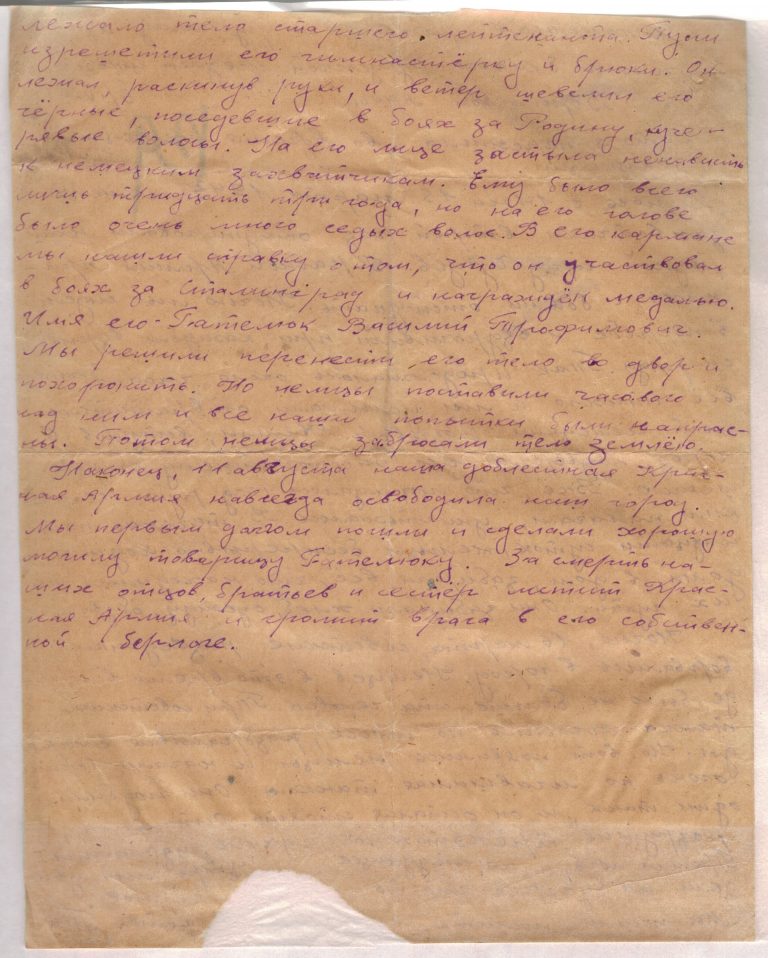 лежало тело старшего лейтенанта. Пули
изрешетили его гимнастёрку и брюки. Он
лежал, раскинув руки, и ветер шевелил его
чёрные, поседевшие в боях за Родину, куче-
рявые волосы. На его лице застыла ненависть
к немецким захватчикам. Ему было всего
лишь тридцать три года, но на его голове
было очень много седых волос. В его кармане
мы нашли справку о том, что он участвовал
в боях за Сталинград и награждён медалью.
Имя его Гателюк Василий Трофимович.
Мы решили перенести его тело во двор и
похоронить. Но немцы поставили часового
над ним и все наши попытки были напрас-
ны. Потом немцы забросали тело землёю.
Наконец, 11 августа наша доблестная Крас-
ная Армия навсегда освободила наш город.
Мы первым долгом пошли и сделали хорошую
могилу товарищу Гателюку. За смерть на-
ших отцов, братьев и сестёр мстит Крас-
ная Армия и громит врага в его собствен-
ной берлоге.